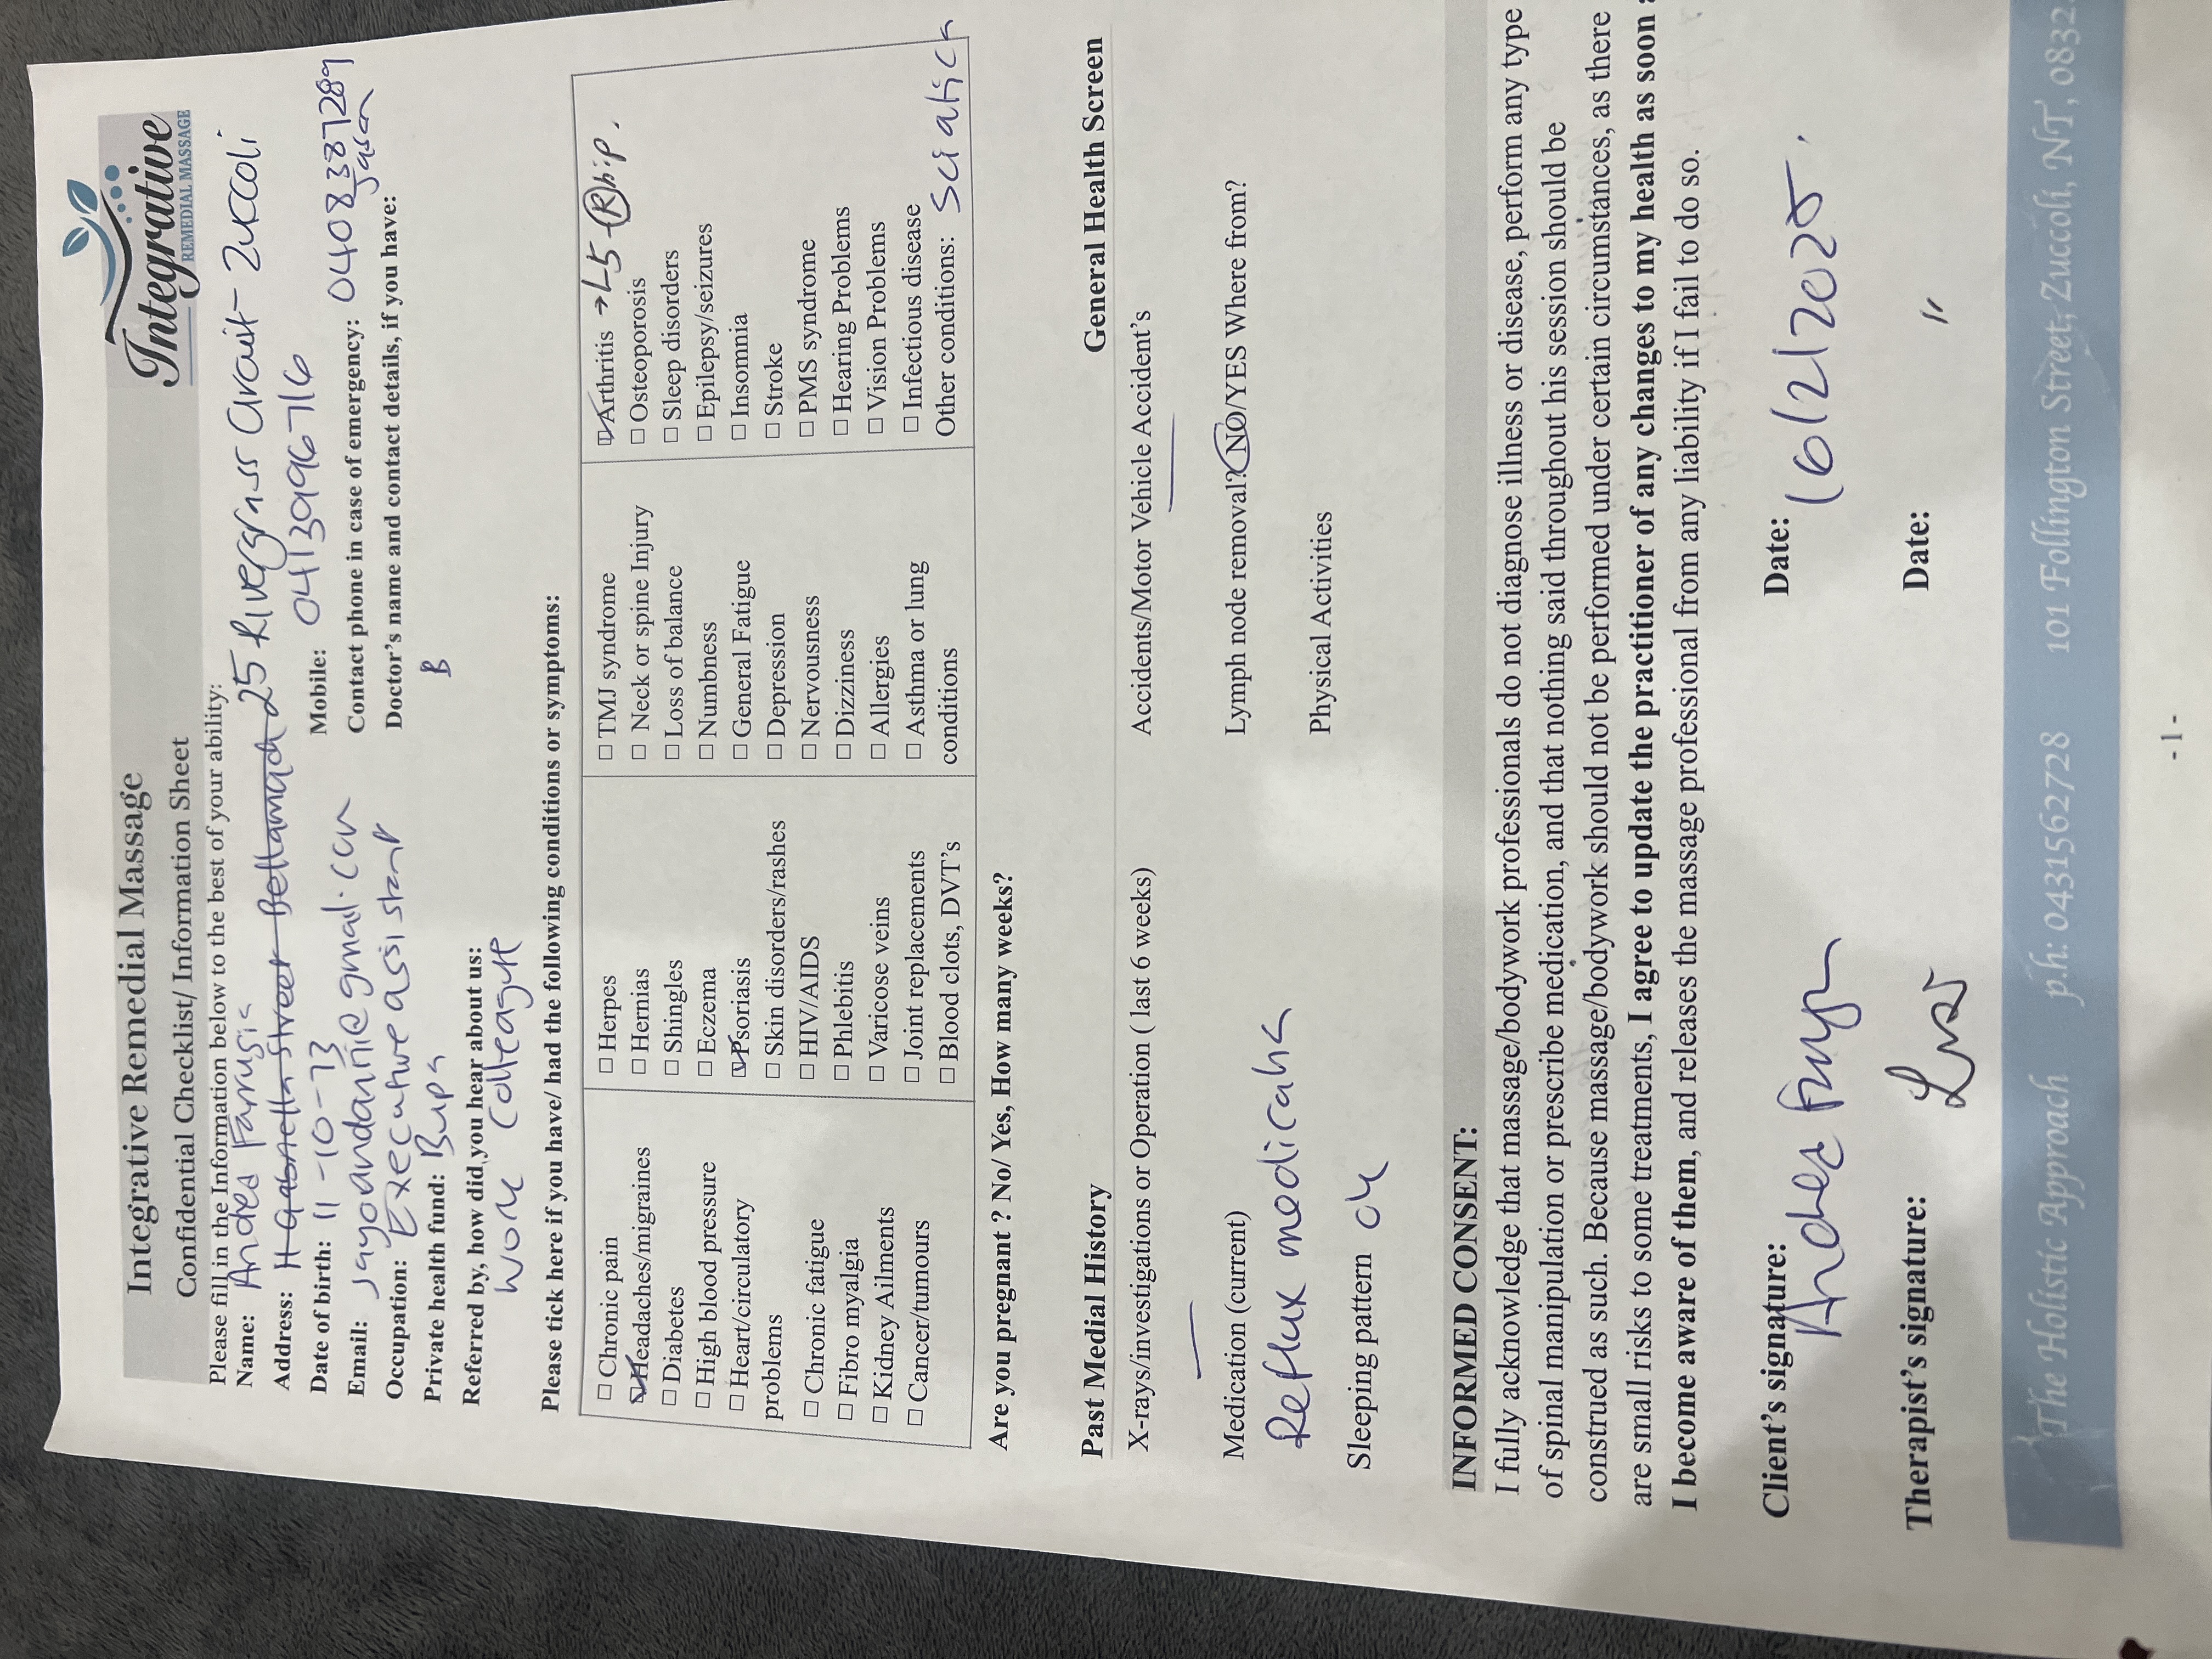 Integrative Remedial Massage
Confidential Checklist/ Information Sheet
Integrative
REMEDIAL MASSAGE
Please fill in the Information below to the best of your ability:
Name: Andrea Farrugia
Address: 25 Rivergrass Circuit - Zuccoli
Date of birth: 11-10-73 Mobile: 0413996716
Email: jayoandannie@gmail.com Contact phone in case of emergency: 0408387289
Jason
Occupation: Executive assistant Doctor's name and contact details, if you have:
Private health fund: Bupa B
Referred by, how did you hear about us:
Work Colleague
Please tick here if you have/ had the following conditions or symptoms:
☐ Chronic pain
☑ Headaches/migraines
☐ Diabetes
☐ High blood pressure
☐ Heart/circulatory
problems
☐ Chronic fatigue
☐ Fibro myalgia
☐ Kidney Ailments
☐ Cancer/tumours
☐ Herpes
☐ Hernias
☐ Shingles
☐ Eczema
☑ Psoriasis
☐ Skin disorders/rashes
☐ HIV/AIDS
☐ Phlebitis
☐ Varicose veins
☐ Joint replacements
☐ Blood clots, DVT's
☐ TMJ syndrome
☐ Neck or spine Injury
☐ Loss of balance
☐ Numbness
☐ General Fatigue
☐ Depression
☐ Nervousness
☐ Dizziness
☐ Allergies
☐ Asthma or lung
conditions
☑ Arthritis → L5 - R hip.
☐ Osteoporosis
☐ Sleep disorders
☐ Epilepsy/seizures
☐ Insomnia
☐ Stroke
☐ PMS syndrome
☐ Hearing Problems
☐ Vision Problems
☐ Infectious disease
Other conditions: Sciatica
Are you pregnant ? No/ Yes, How many weeks?
Past Medial History General Health Screen
X-rays/investigations or Operation ( last 6 weeks) Accidents/Motor Vehicle Accident's
Medication (current) Lymph node removal? NO/YES Where from?
Reflux medication
Sleeping pattern ok Physical Activities
INFORMED CONSENT:
I fully acknowledge that massage/bodywork professionals do not diagnose illness or disease, perform any type
of spinal manipulation or prescribe medication, and that nothing said throughout his session should be
construed as such. Because massage/bodywork should not be performed under certain circumstances, as there
are small risks to some treatments, I agree to update the practitioner of any changes to my health as soon
I become aware of them, and releases the massage professional from any liability if I fail to do so.
Client's signature: Date: 16/2/2025.
Andrea
Therapist's signature: Date: "
The Holistic Approach p.h: 0431562728 101 Follington Street, Zuccoli, NT, 0832
- 1 -